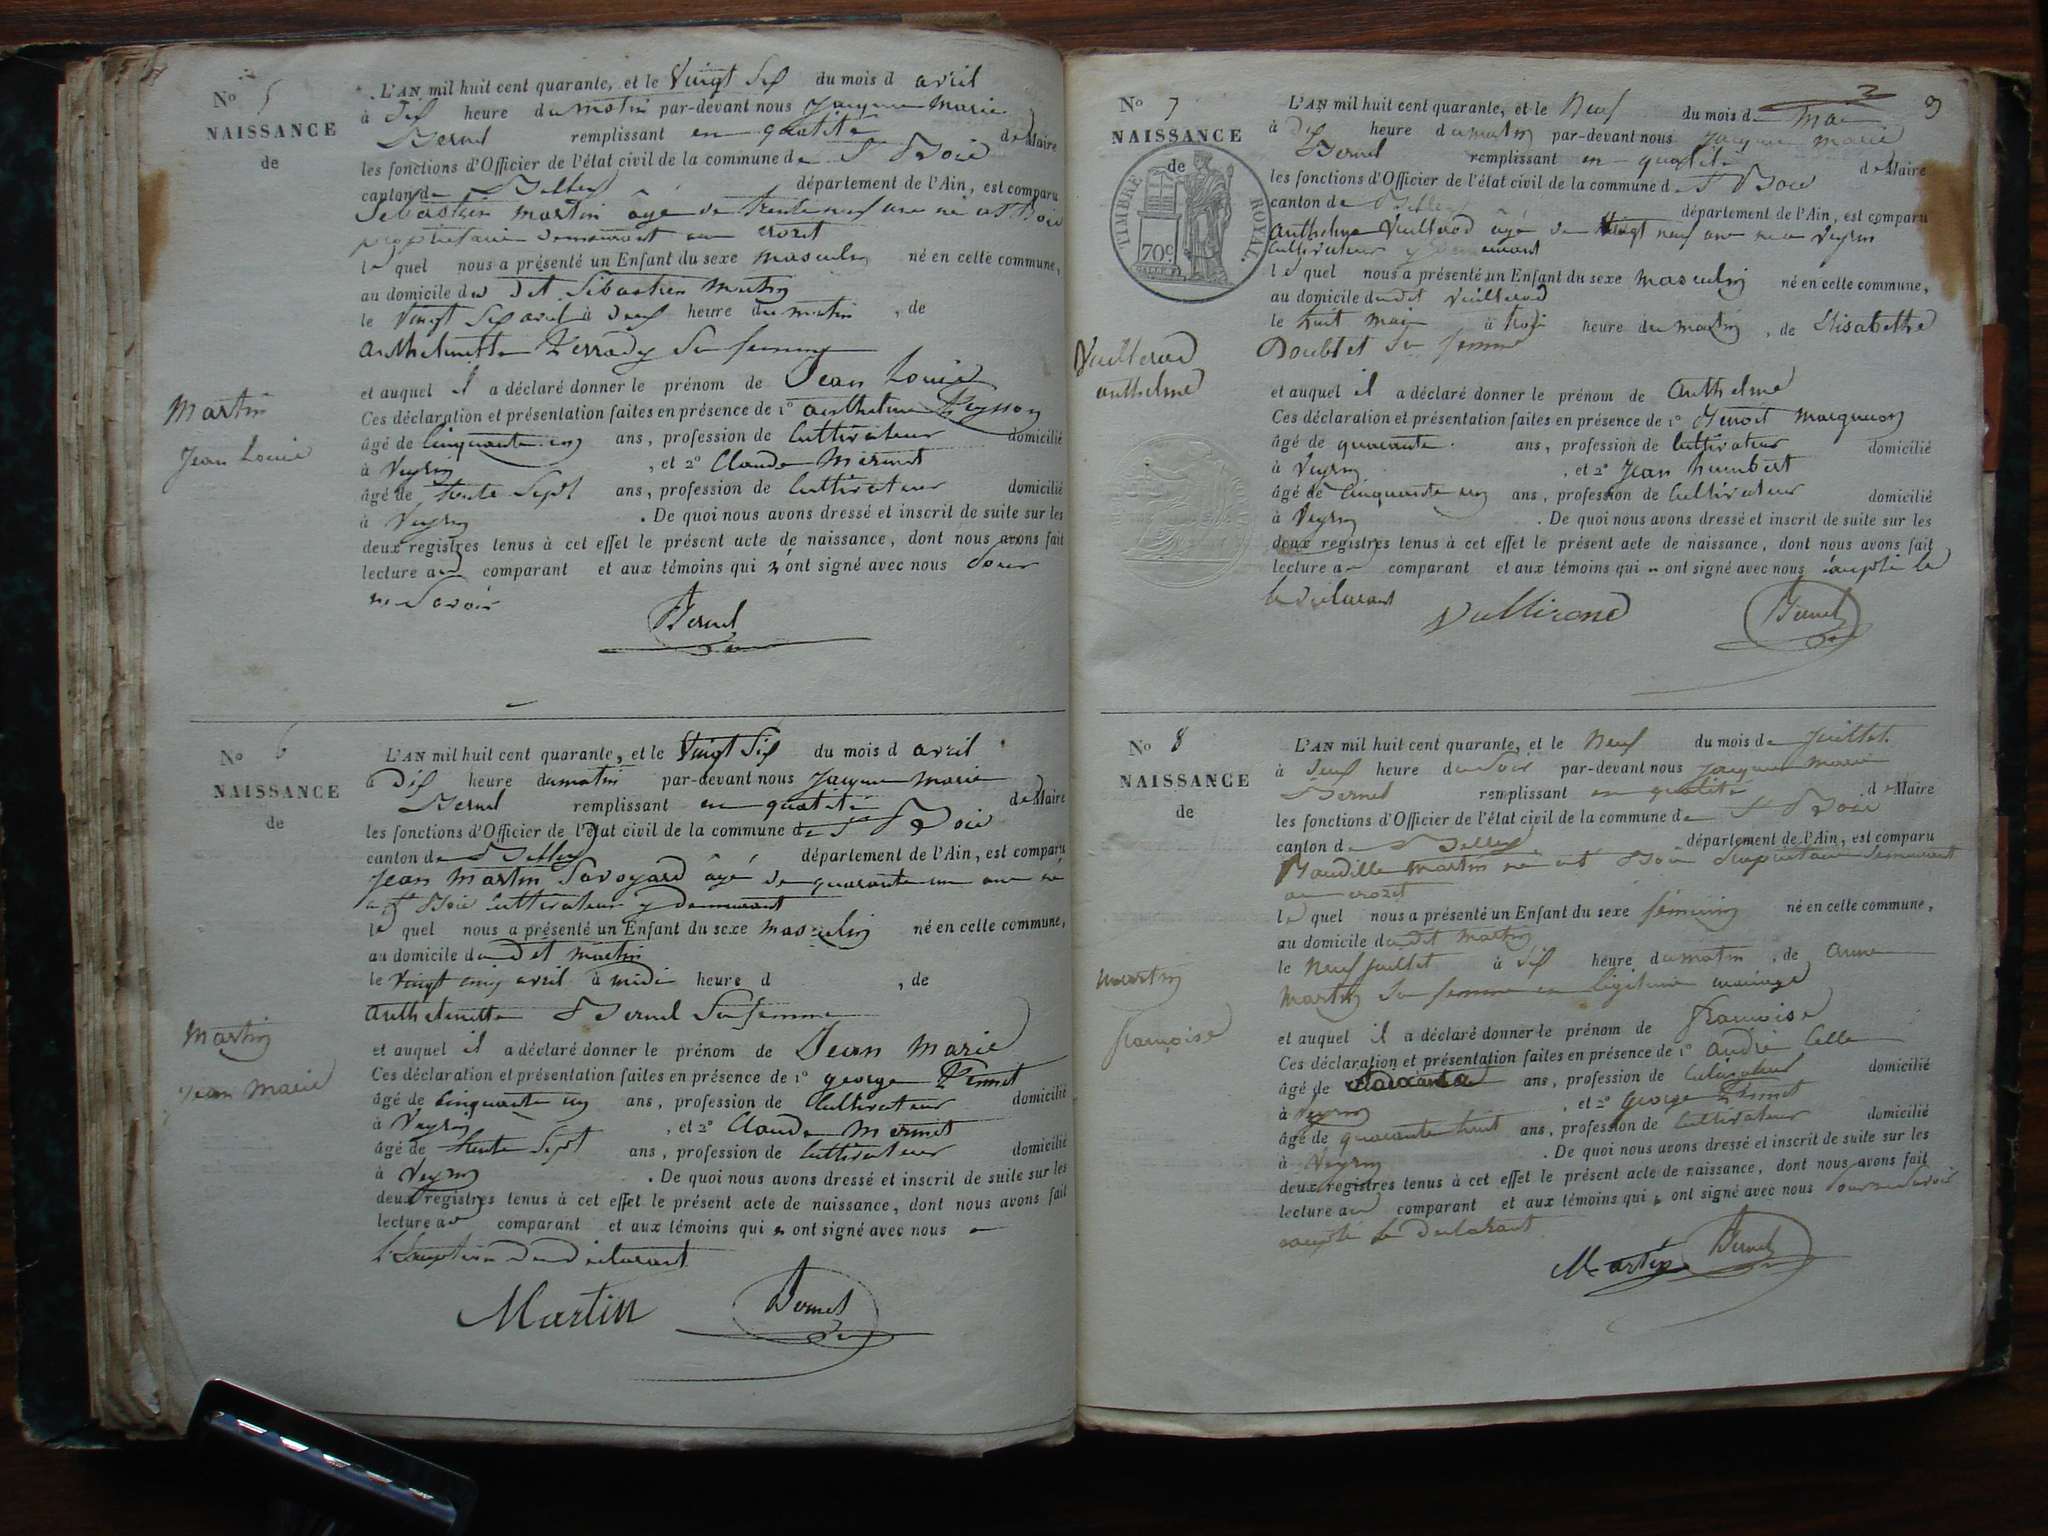 N.º 5
NAISSANCE
de
Martin
Jean Louis
L'AN mil huit cent quarante, et le Vingt Six du mois d avril
à Dix heure du matin par-devant nous Jacque Marie
Bernel remplissant en qualité de Maire
les fonctions d'Officier de l'état civil de la commune de St Bois
canton de Belley département de l'Ain, est comparu
Sébastien Martin âgé de trente neuf ans né a St Bois
propriétaire demeurant au crozet
le quel nous a présenté un Enfant du sexe masculin né en cette commune,
au domicile du dit Sébastien Martin
le Vingt Six avril à Deux heure du matin, de
Anthelmette sa femme
et auquel il a déclaré donner le prénom de Jean Louis
Ces déclaration et présentation faites en présence de 1º anthelme
âgé de Cinquante un ans, profession de Cultivateur domicilié
à Veyrin, et 2º Claude Mermet
âgé de trente Sept ans, profession de Cultivateur domicilié
à Veyrin. De quoi nous avons dressé et inscrit de suite sur les
deux registres tenus à cet effet le présent acte de naissance, dont nous avons fait
lecture au comparant et aux témoins qui n ont signé avec nous pour
ne Savoir
Bernel
N.º 6
NAISSANCE
de
Martin
Jean Marie
L'AN mil huit cent quarante, et le Vingt Six du mois d avril
à Dix heure du matin par-devant nous Jacque Marie
Bernel remplissant en qualité de Maire
les fonctions d'Officier de l'état civil de la commune de St Bois
canton de Belley département de l'Ain, est comparu
Jean Martin Savoyard âgé de quarante un ans né
a St Bois cultivateur y demeurant
le quel nous a présenté un Enfant du sexe masculin né en cette commune,
au domicile du dit Martin
le Vingt cinq avril à midi heure d , de
Anthelmette Bernel Sa femme
et auquel il a déclaré donner le prénom de Jean Marie
Ces déclaration et présentation faites en présence de 1º george
âgé de Cinquante un ans, profession de Cultivateur domicilié
à Veyrin, et 2º Claude Mermet
âgé de trente Sept ans, profession de Cultivateur domicilié
à Veyrin. De quoi nous avons dressé et inscrit de suite sur les
deux registres tenus à cet effet le présent acte de naissance, dont nous avons fait
lecture au comparant et aux témoins qui n ont signé avec nous a
l'Exception du déclarant
Martin Bernel
3
N.º 7
NAISSANCE
de
TIMBRE ROYAL.
70c
Vuillerod
anthelme
L'AN mil huit cent quarante, et le Neuf du mois de Mai
à Dix heure du matin par-devant nous Jacque Marie
Bernel remplissant en qualité de Maire
les fonctions d'Officier de l'état civil de la commune de St Bois
canton de Belley département de l'Ain, est comparu
Anthelme Vuillerod âgé de Vingt neuf ans né a Veyrin
cultivateur y demeurant
le quel nous a présenté un Enfant du sexe masculin né en cette commune,
au domicile du dit Vuillerod
le huit mai à trois heure du matin, de Elisabethe
Doublet Sa femme
et auquel il a déclaré donner le prénom de Anthelme
Ces déclaration et présentation faites en présence de 1º Benoit
âgé de quarante ans, profession de Cultivateur domicilié
à Veyrin, et 2º Jean humbert
âgé de Cinquante un ans, profession de Cultivateur domicilié
à Veyrin. De quoi nous avons dressé et inscrit de suite sur les
deux registres tenus à cet effet le présent acte de naissance, dont nous avons fait
lecture au comparant et aux témoins qui n ont signé avec nous
le déclarant
Bernel
N.º 8
NAISSANCE
de
Martin
françoise
L'AN mil huit cent quarante, et le Neuf du mois de Juillet
à Deux heure du Soir par-devant nous Jacque Marie
Bernel remplissant en qualité de Maire
les fonctions d'Officier de l'état civil de la commune de St Bois
canton de Belley département de l'Ain, est comparu
Baudille Martin né a St Bois propriétaire demeurant
au crozet
le quel nous a présenté un Enfant du sexe féminin né en cette commune,
au domicile du dit Martin
le Neuf juillet à Six heure du matin, de anne
Martin Sa femme en légitime mariage
et auquel il a déclaré donner le prénom de françoise
Ces déclaration et présentation faites en présence de 1º andré
âgé de ans, profession de Cultivateur domicilié
à Veyrin, et 2º george
âgé de quarante huit ans, profession de Cultivateur domicilié
à Veyrin. De quoi nous avons dressé et inscrit de suite sur les
deux registres tenus à cet effet le présent acte de naissance, dont nous avons fait
lecture au comparant et aux témoins qui n ont signé avec nous pour ne Savoir
excepté le déclarant
Martin Bernel